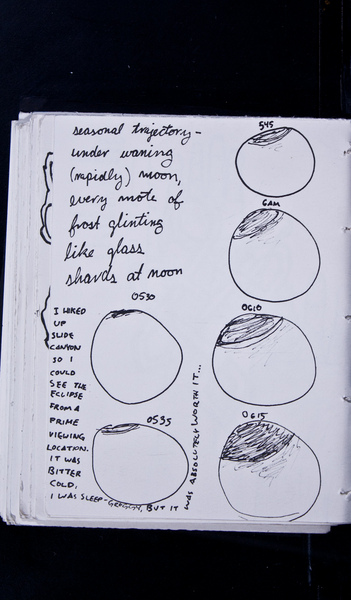 seasonal trajectory -
under waning
(rapidly) moon,
every mote of
frost glinting
like glass
shards at noon
545
6AM
0530
0610
I HIKED
UP
SLIDE
CANYON
SO I
COULD
SEE THE
ECLIPSE
FROM A
PRIME
VIEWING
LOCATION.
IT WAS
BITTER
COLD,
I WAS SLEEP-GROGGY, BUT IT
WAS ABSOLUTELY WORTH IT...
0535
0615